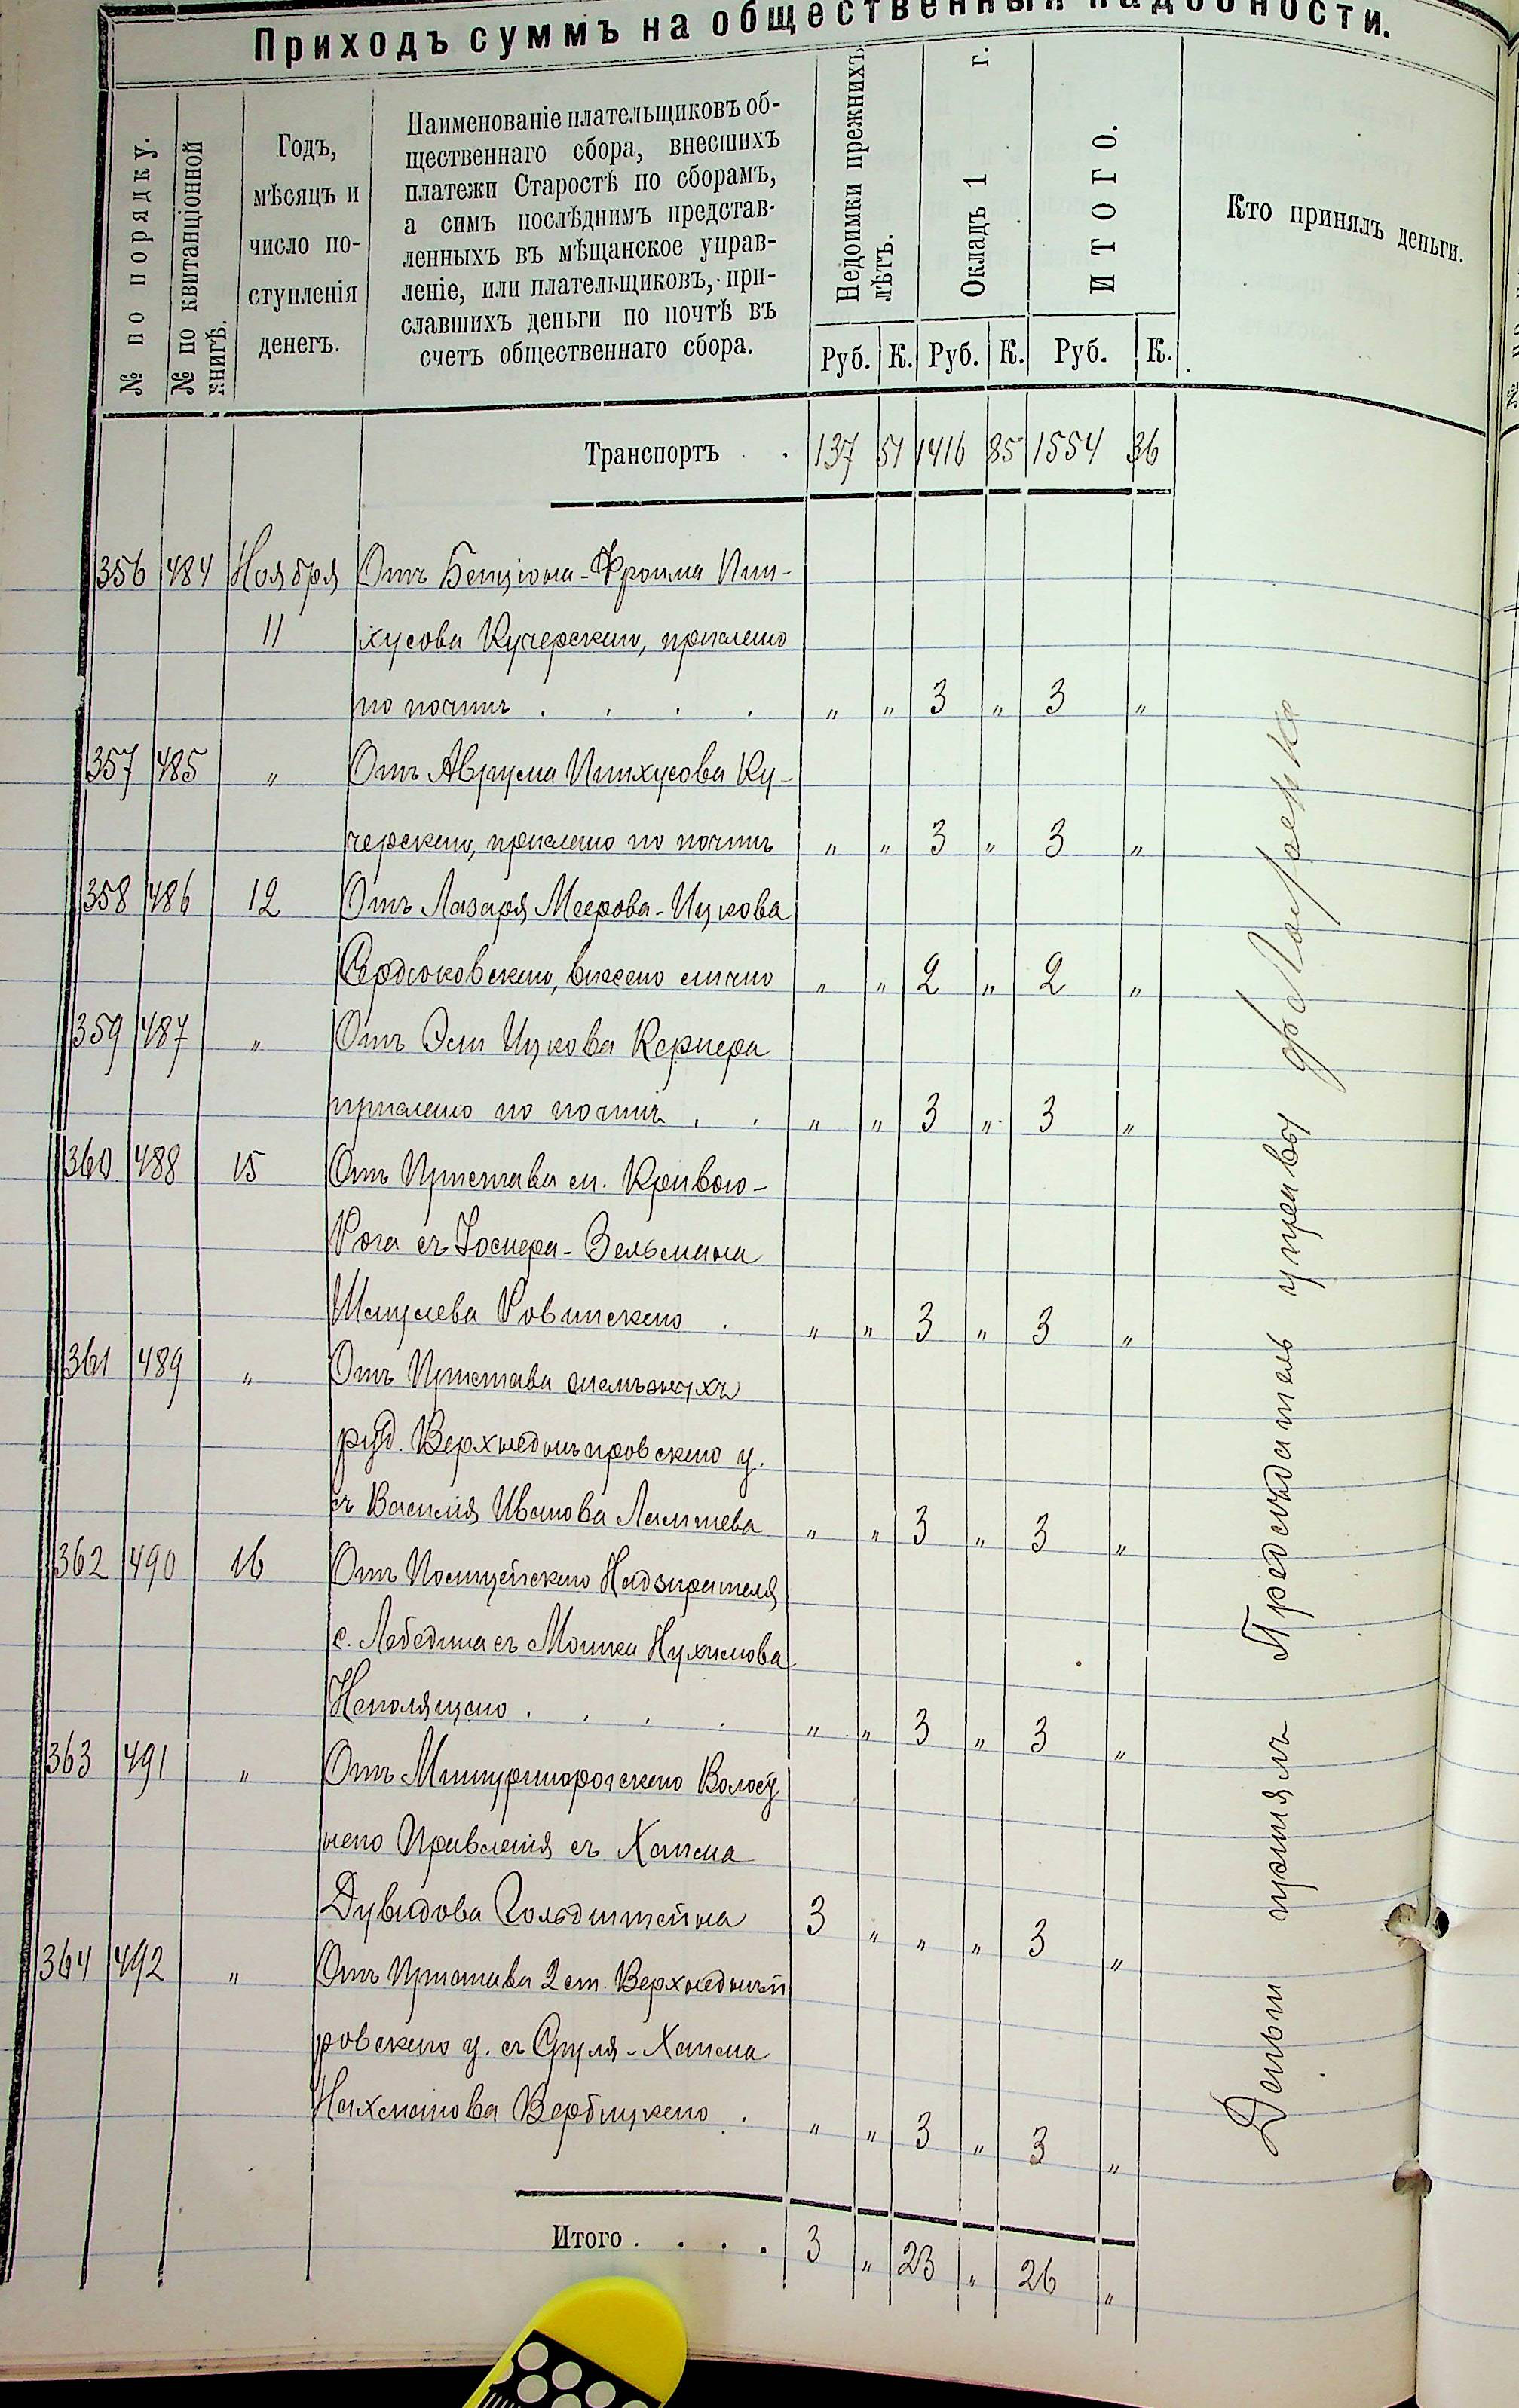 Приходъ суммъ на общественныя надобности.
№ по порядку.
№ по квитанціонной книгѣ.
Годъ,
мѣсяцъ и
число по-
ступленія
денегъ.
Наименованіе плательщиковъ об-
щественнаго сбора, внесшихъ
платежи Старостѣ по сборамъ,
а симъ послѣднимъ представ-
ленныхъ въ мѣщанское управ-
леніе, или плательщиковъ, при-
славшихъ деньги по почтѣ въ
счетъ общественнаго сбора.
Недоимки прежнихъ лѣтъ.
Окладъ 1 г.
ИТОГО.
Кто принялъ деньги.
Руб. К. Руб. К. Руб. К.
Транспортъ . . 137 51 1416 85 1554 36
356 484 Ноября Отъ Бенціона-Фроима Пин-
11 хусова Кучерскаго, прислано
по почтѣ . . . . " " 3 " 3 "
357 485 " Отъ Аврума Пинхусова Ку-
черскаго, прислано по почтѣ " " 3 " 3 "
358 486 12 Отъ Лазаря Меерова-Ицкова
Сердюковскаго, внесено лично " " 2 " 2 "
359 487 " Отъ Эли Ицкова Кернера
прислано по почтѣ . . " " 3 " 3 "
360 488 15 Отъ Пристава м. Кривого-
Рога съ Іосифа-Зельмана
Шмулева Ровинскаго . " " 3 " 3 "
361 489 " Отъ Пристава
руд. Верхнеднѣпровскаго у.
съ Василія Иванова " " 3 " 3 "
362 490 16 Отъ Полицейскаго Надзирателя
с. Лебедина съ Мошка Нухимова
. . . . " " 3 " 3 "
363 491 " Отъ Мишуринорогскаго Волост
наго Правленія съ Хаима
Дувидова Гольдштейна 3 " " " 3 "
364 492 " Отъ Пристава 2 ст. Верхнеднѣп
ровскаго у. съ Сруля-Хаима
Нахманова Вербицкаго . " " 3 " 3 "
Итого . . . . 3 " 23 " 26 "
Деньги принялъ Предсѣдатель управы